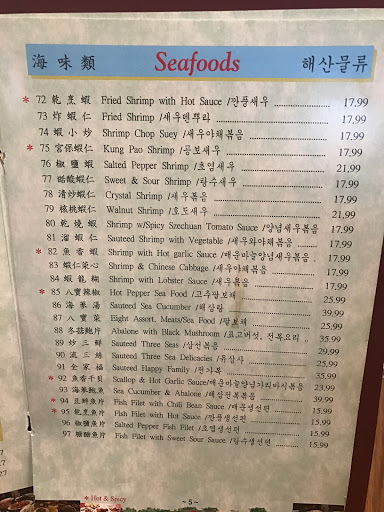 海味類 Seafoods 해산물류
* 72 乾烹蝦 Fried Shrimp with Hot Sauce /깐풍새우 17.99
73 炸蝦仁 Fried Shrimp /새우덴뿌라 17.99
74 蝦小炒 Shrimp Chop Suey /새우야채볶음 17.99
* 75 宮保蝦仁 Kung Pao Shrimp /공보새우 17.99
76 椒鹽蝦 Salted Pepper Shrimp /초염새우 21.99
77 Sweet & Sour Shrimp /탕수새우 17.99
78 清炒蝦仁 Crystal Shrimp /새우볶음 17.99
79 核桃蝦仁 Walnut Shrimp /호도새우 21.99
80 乾燒蝦 Shrimp w/Spicy Szechuan Tomato Sauce /양념새우볶음 17.99
81 溜蝦仁 Sauteed Shrimp with Vegetable /새우와야채볶음 17.99
* 82 魚香蝦 Shrimp with Hot garlic Sauce /매운마늘양념새우볶음 17.99
83 蝦仁菜心 Shrimp & Chinese Cabbage /새우야채볶음 17.99
84 蝦龍糊 Shrimp with Lobster Sauce /새우볶음 17.99
* 85 八寶辣椒 Hot Pepper Sea Food /고추팔보채 25.99
86 海蔘湯 Sauteed Sea Cucumber /해삼탕 39.99
87 八寶菜 Eight Assort, Meats/Sea Food /팔보채 25.99
88 冬菇鮑片 Abalone with Black Mushroom /표고버섯, 전복요리 35.99
89 炒三鮮 Sauteed Three Seas /삼선볶음 29.99
90 流三絲 Sauteed Three Sea Delicacies /유삼사 25.99
91 全家福 Sauteed Happy Family /전가복 35.99
* 92 魚香干貝 Scallop & Hot Garlic Sauce/매운마늘양념가리비볶음 23.99
93 海蔘鮑魚 Sea Cucumber & Abalone /해삼전복볶음 39.99
* 94 豆瓣魚片 Fish Filet with Chili Bean Sauce /매운생선편 15.99
* 95 乾烹魚片 Fish Filet with Hot Sauce /깐풍생선편 15.99
96 椒鹽魚片 Salted Pepper Fish Filet /초염생선편 15.99
97 糖醋魚片 Fish Filet with Sweet Sour Sauce /탕수생선편 15.99
* Hot & Spicy
~ 5 ~